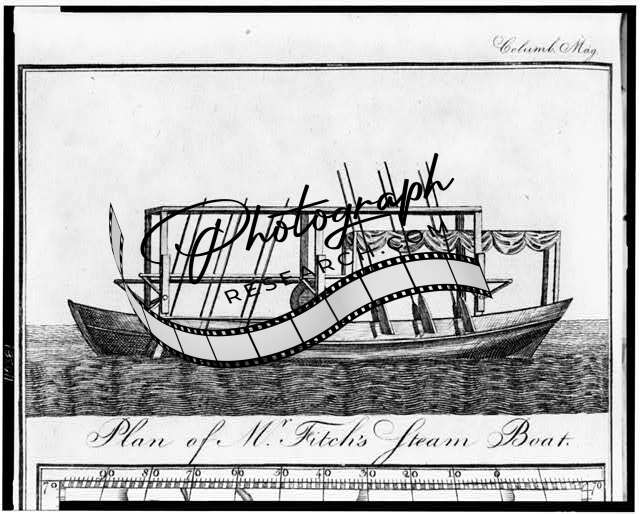 Columb. Mag.
Photograph
RESEARCH.COM
Plan of Mr. Fitch's Steam Boat.
90 80 70 60 50 40 30 20 10 0
70 70